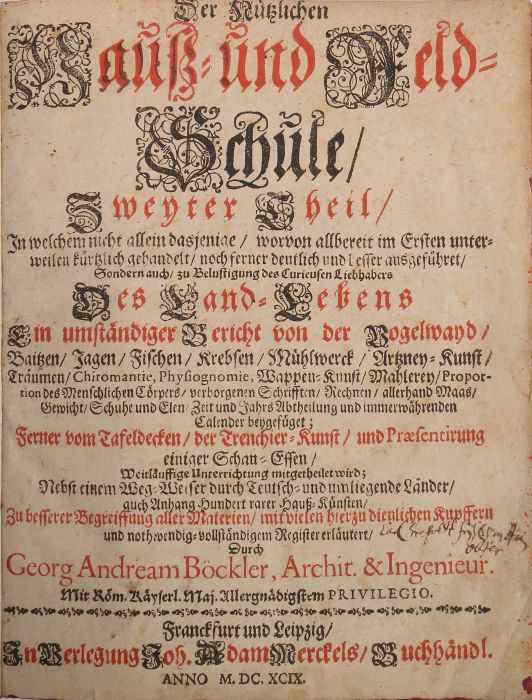 Der Nützlichen
Hauß- und Feld-
Schule/
Zweyter Theil/
In welchem nicht allein dasjenige / worvon allbereit im Ersten unter-
weilen kürtzlich gehandelt / noch ferner deutlich und besser ausgeführet /
Sondern auch / zu Belustigung des Curieusen Liebhabers
Des Land-Lebens
Ein umständiger Bericht von der Vogelwayd /
Baitzen / Jagen / Fischen / Krebsen / Mühlwerck / Artzney-Kunst /
Träumen / Chiromantie, Physiognomie, Wappen-Kunst / Mahlerey / Propor-
tion des Menschlichen Cörpers / verborgenen Schrifften / Rechnen / allerhand Maas /
Gewicht / Schuhe und Elen Zeit und Jahrs Abtheilung und immerwährenden
Calender beygefüget ;
Ferner vom Tafeldecken / der Trenchier-Kunst / und Præsentirung
einiger Schau-Essen /
Weitläuffige Unterrichtung mitgetheilet wird ;
Nebst einem Weg-Weiser durch Teutsch- und umliegende Länder /
auch Anhang Hundert rarer Hauß-Künsten /
Zu besserer Begreiffung aller Materien / mit vielen hierzu dienlichen Kupffern
und nothwendig-vollständigem Register erläutert /
Durch
Georg Andream Böckler, Archit. & Ingenieur.
Mit Röm. Käyserl. Maj. Allergnädigstem PRIVILEGIO.
Franckfurt und Leipzig /
In Verlegung Joh. Adam Merckels / Buchhändl.
ANNO M. DC. XCIX.